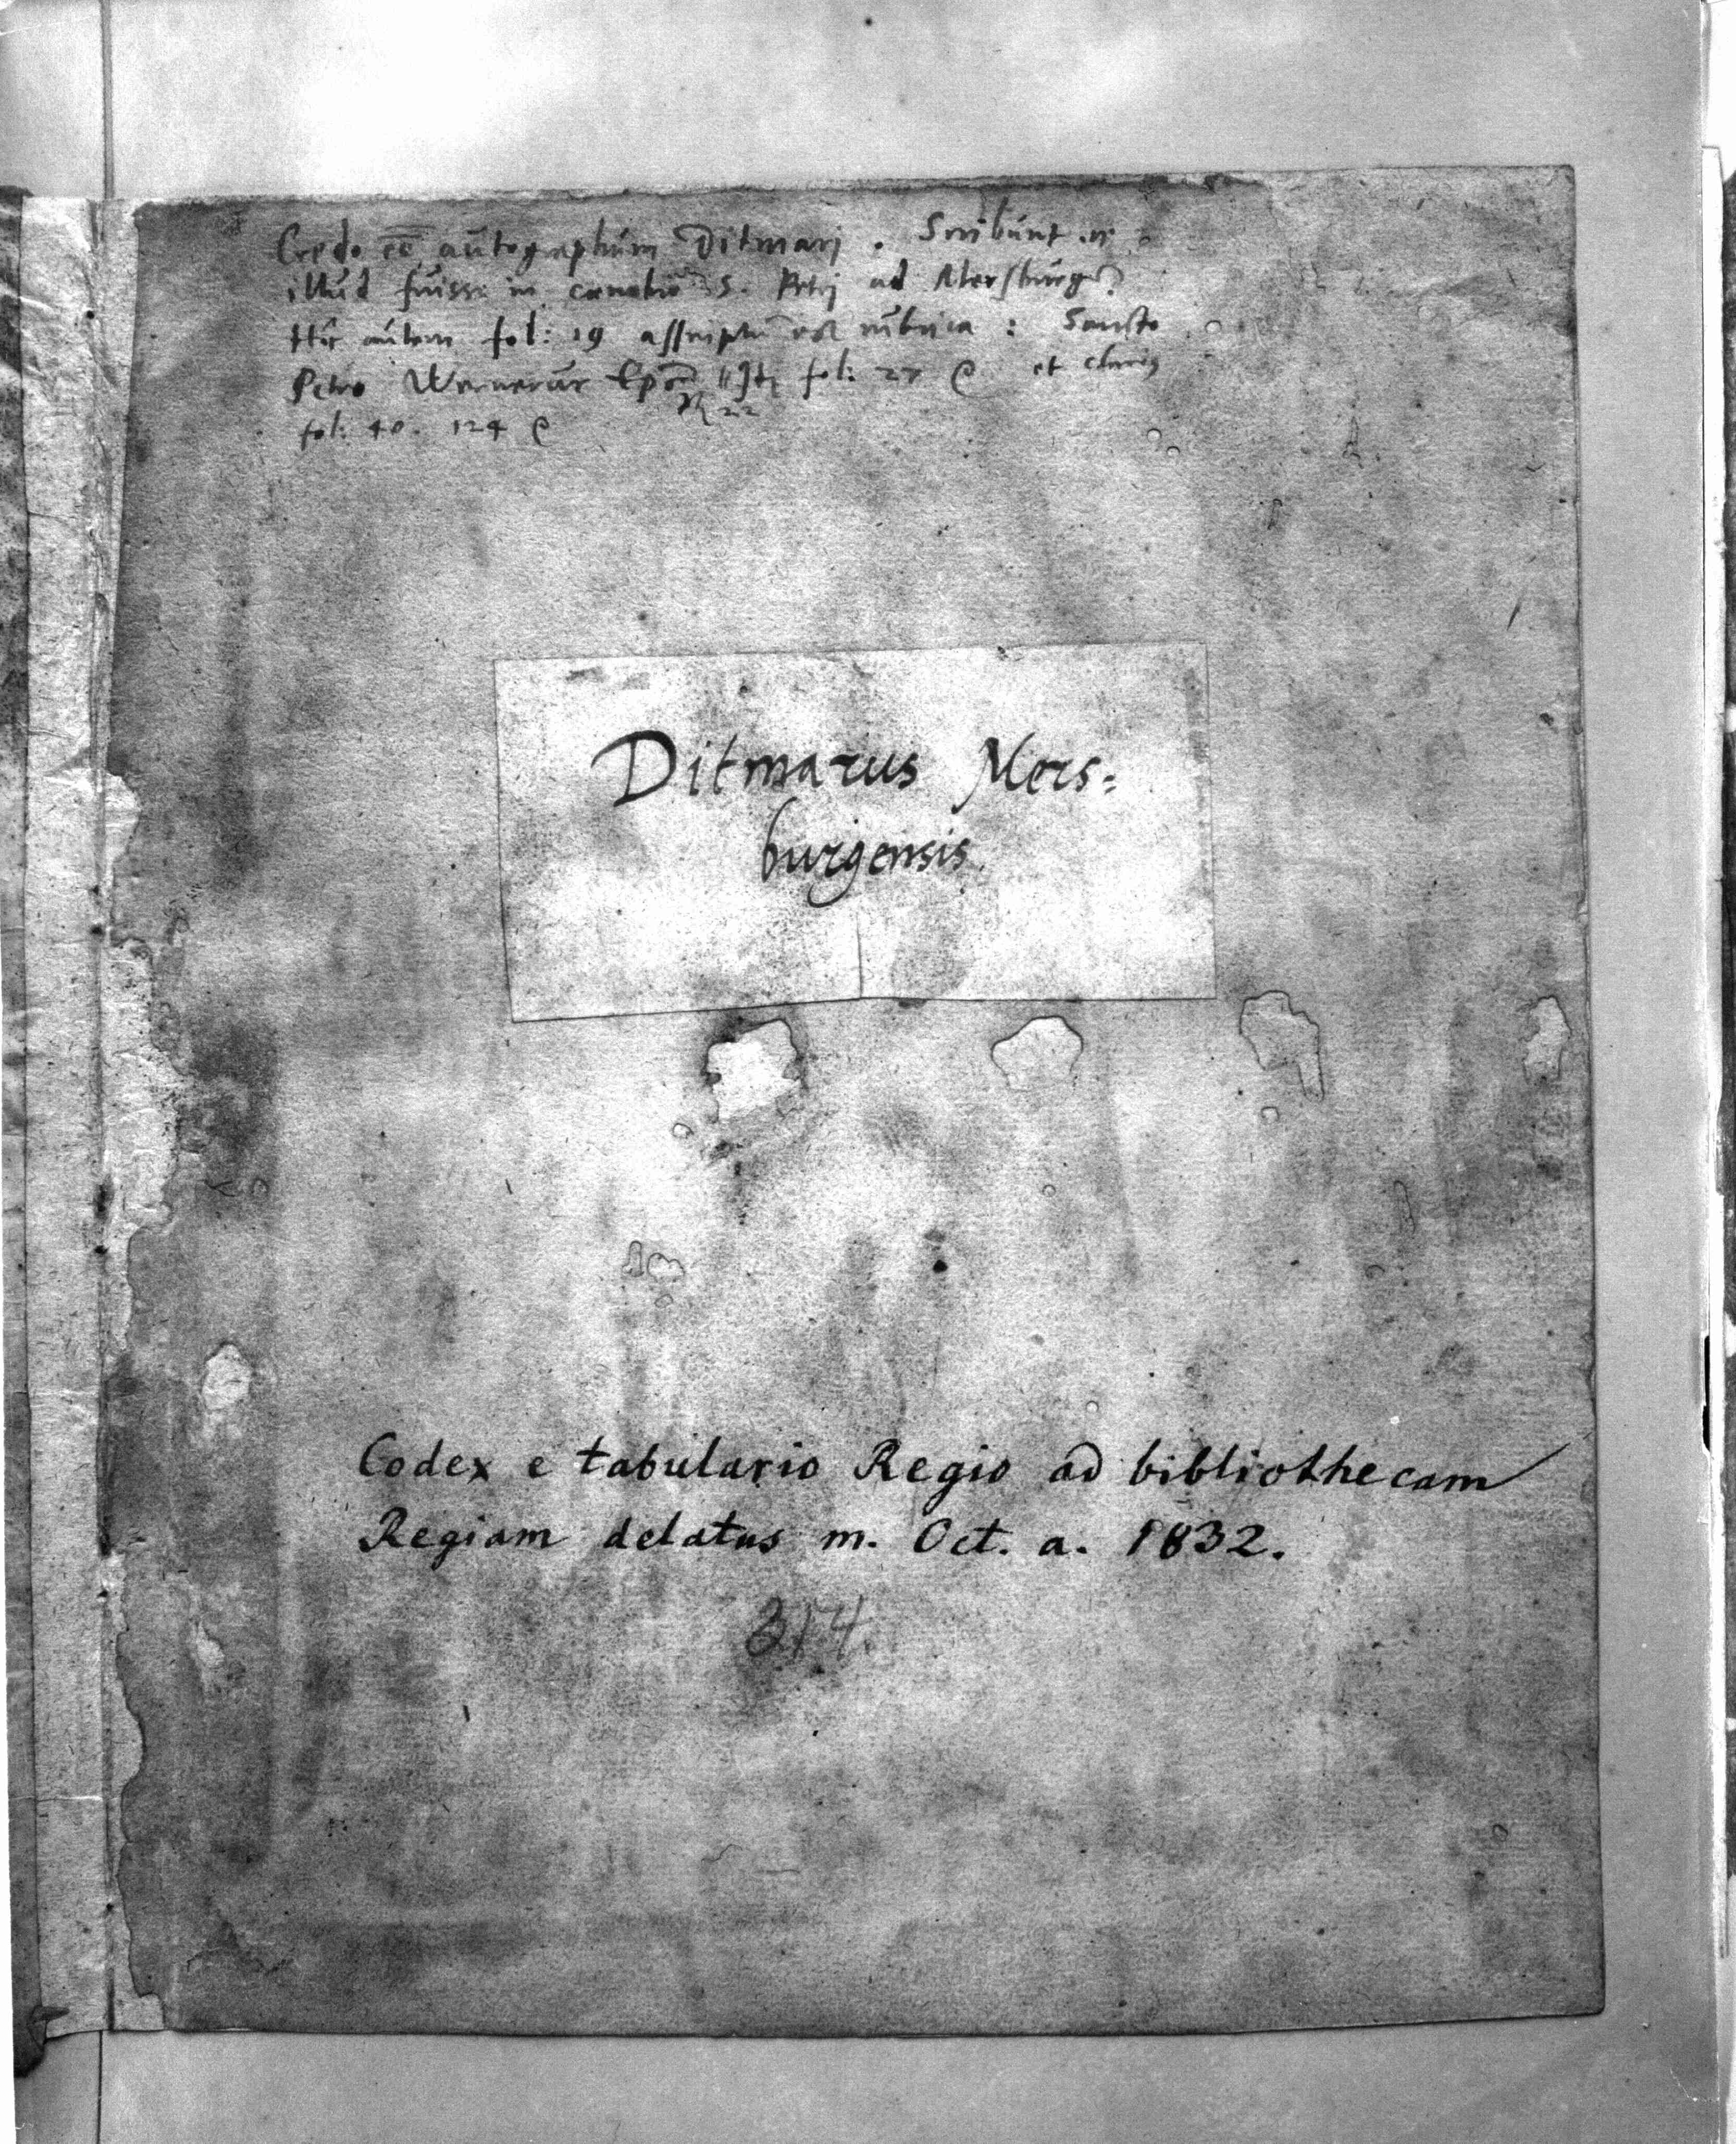 Credo eē autographum Ditmarj. Scribunt .n.
illud fuisse in cœnobio S. Petrj ad Mersburgū
Hīc autem fol: 19 asscriptū est rubrica: Sancto
Petro Wernerus Ep̄s fol: 27 et clarius
fol: 40. 124
Ditmarus Mers:
burgensis
Codex e tabulario Regio ad bibliothecam
Regiam delatus m. Oct. a. 1832.
314